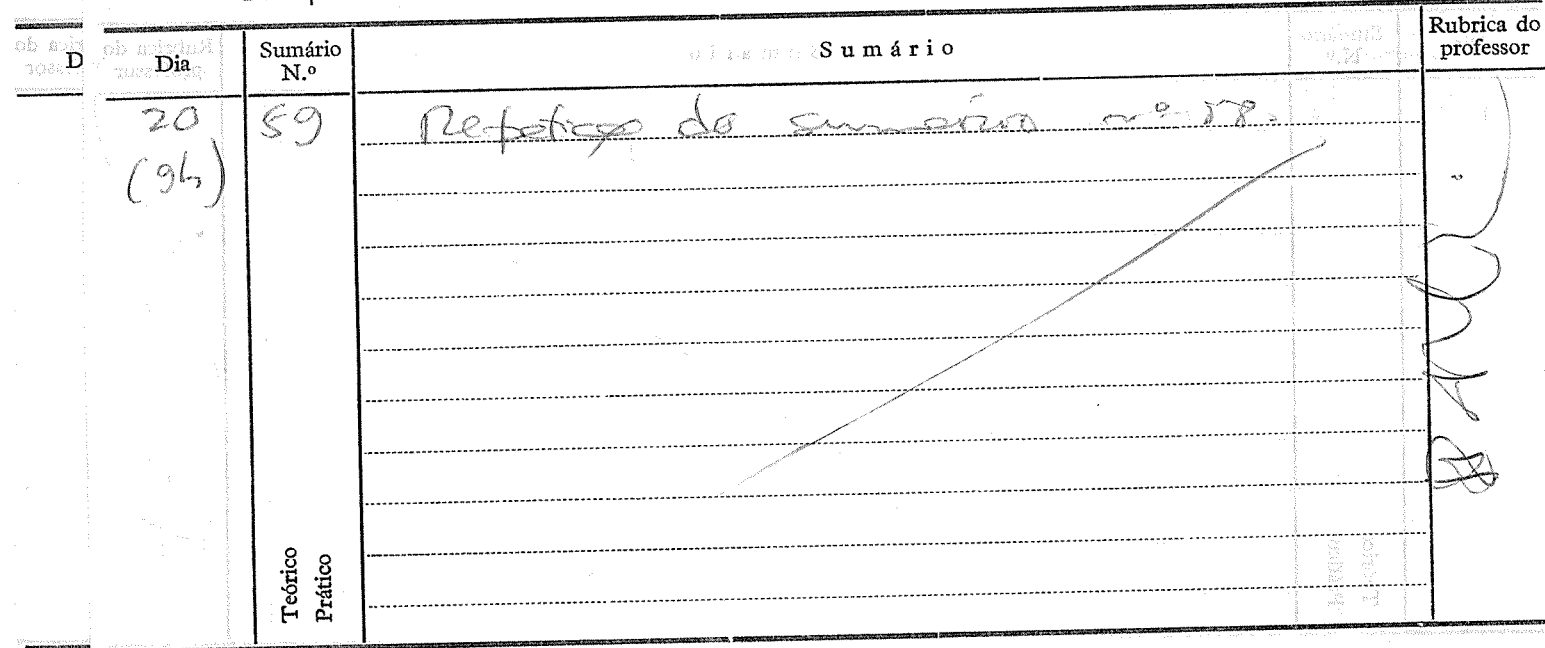 D
Dia
Sumário
N.º
Sumário
Rubrica do
professor
20
59
Repetição do sumário nº 58.
(9h)
Teórico
Prático